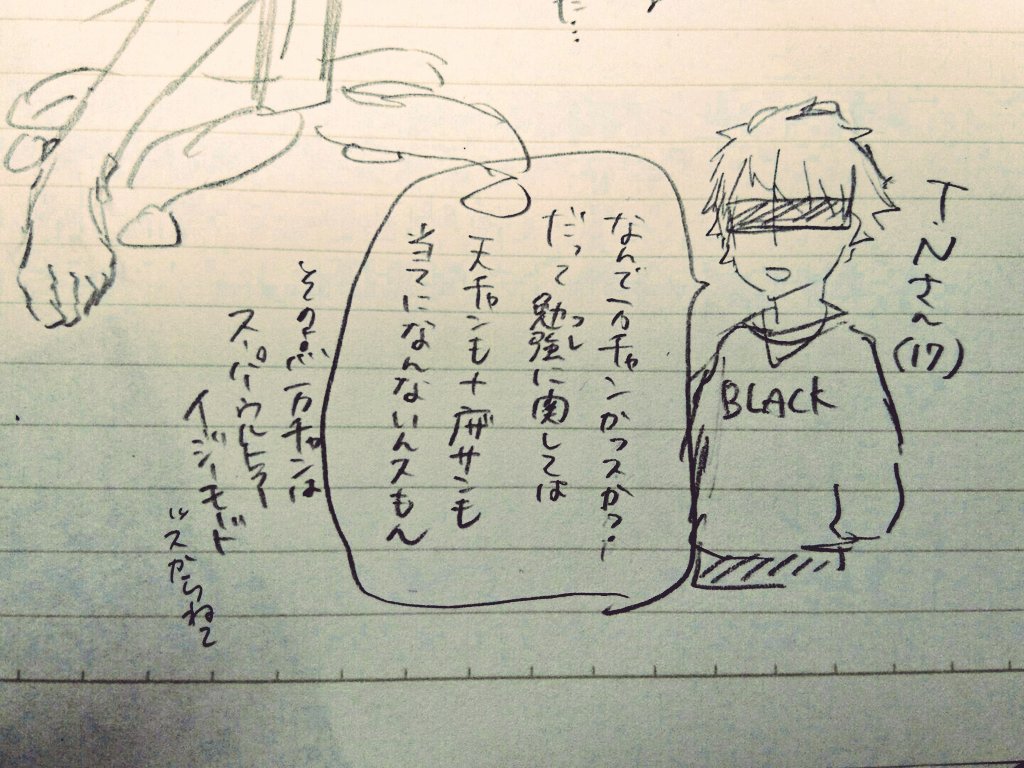 た…
T.Nさん
(17)
BLACK
なんで万チャンかっスかっ!
だって勉強に関しては
っし
天チャンも十座サンも
当てになんないんスもん
その点万チャンは
スーパーウルトラ
イージーモード
っスからねて